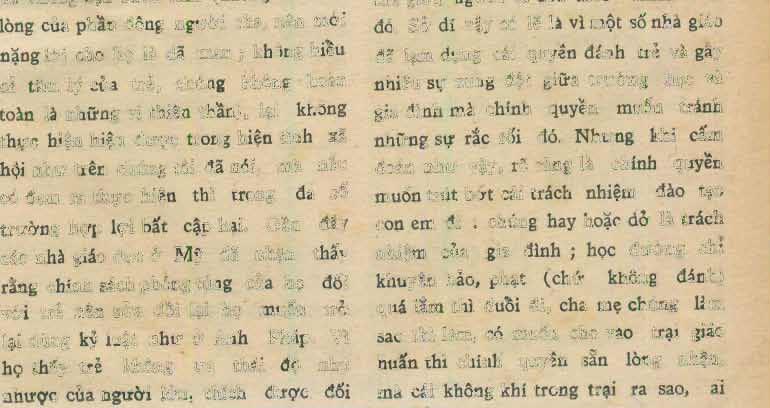 lòng của phần đông người cha, nên mới
nặng lời cho họ là dã man ; không hiểu
tâm lý của trẻ, chúng không hoàn
toàn là những vị thiên thần, lại không
thực hiện được trong hiện tình xã
hội như trên chúng tôi đã nói, mà nếu
có đem ra thực hiện thì trong đa số
trường hợp lợi bất cập hại. Gần đây
các nhà giáo dục ở Mỹ đã nhận thấy
rằng chính sách phóng túng của họ đối
với trẻ nên sửa đổi lại họ muốn trở
lại dùng kỷ luật như ở Anh Pháp. Vì
họ thấy trẻ không ưa thái độ nhu
nhược của người lớn, thích được đối
đó. Sở dĩ vậy có lẽ là vì một số nhà giáo
đã lạm dụng cái quyền đánh trẻ và gây
nhiều sự xung đột giữa trường học và
gia đình mà chính quyền muốn tránh
những sự rắc rối đó. Nhưng khi cấm
đoán như vậy, rõ ràng là chính quyền
muốn trút bớt cái trách nhiệm đào tạo
con em đi : chúng hay hoặc dở là trách
nhiệm của gia đình ; học đường chỉ
khuyên bảo, phạt (chứ không đánh)
quá lắm thì đuổi đi, cha mẹ chúng làm
sao thì làm, có muốn cho vào trại giáo
huấn thì chính quyền sẵn lòng nhận,
mà cái không khí trong trại ra sao, ai